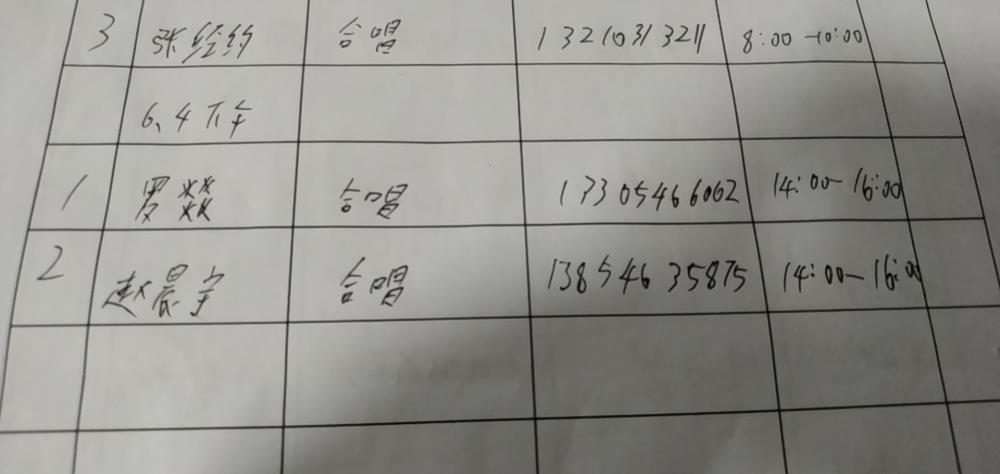 3 张经纬 合唱 13210313211 8:00-10:00
6、4 下午
1 罗燚 合唱 17305466062 14:00-16:00
2 赵晨宇 合唱 13854635875 14:00-16:00